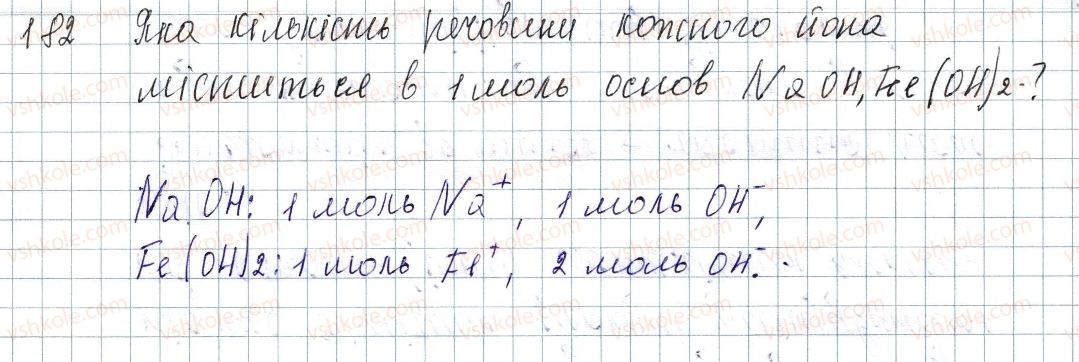 182 Яка кількість речовини кожного йона
міститься в 1 моль основ NaOH, Fe(OH)2.?
NaOH: 1 моль Na⁺, 1 моль OH⁻,
Fe(OH)2: 1 моль Fe⁺, 2 моль OH⁻.
vshkole.com